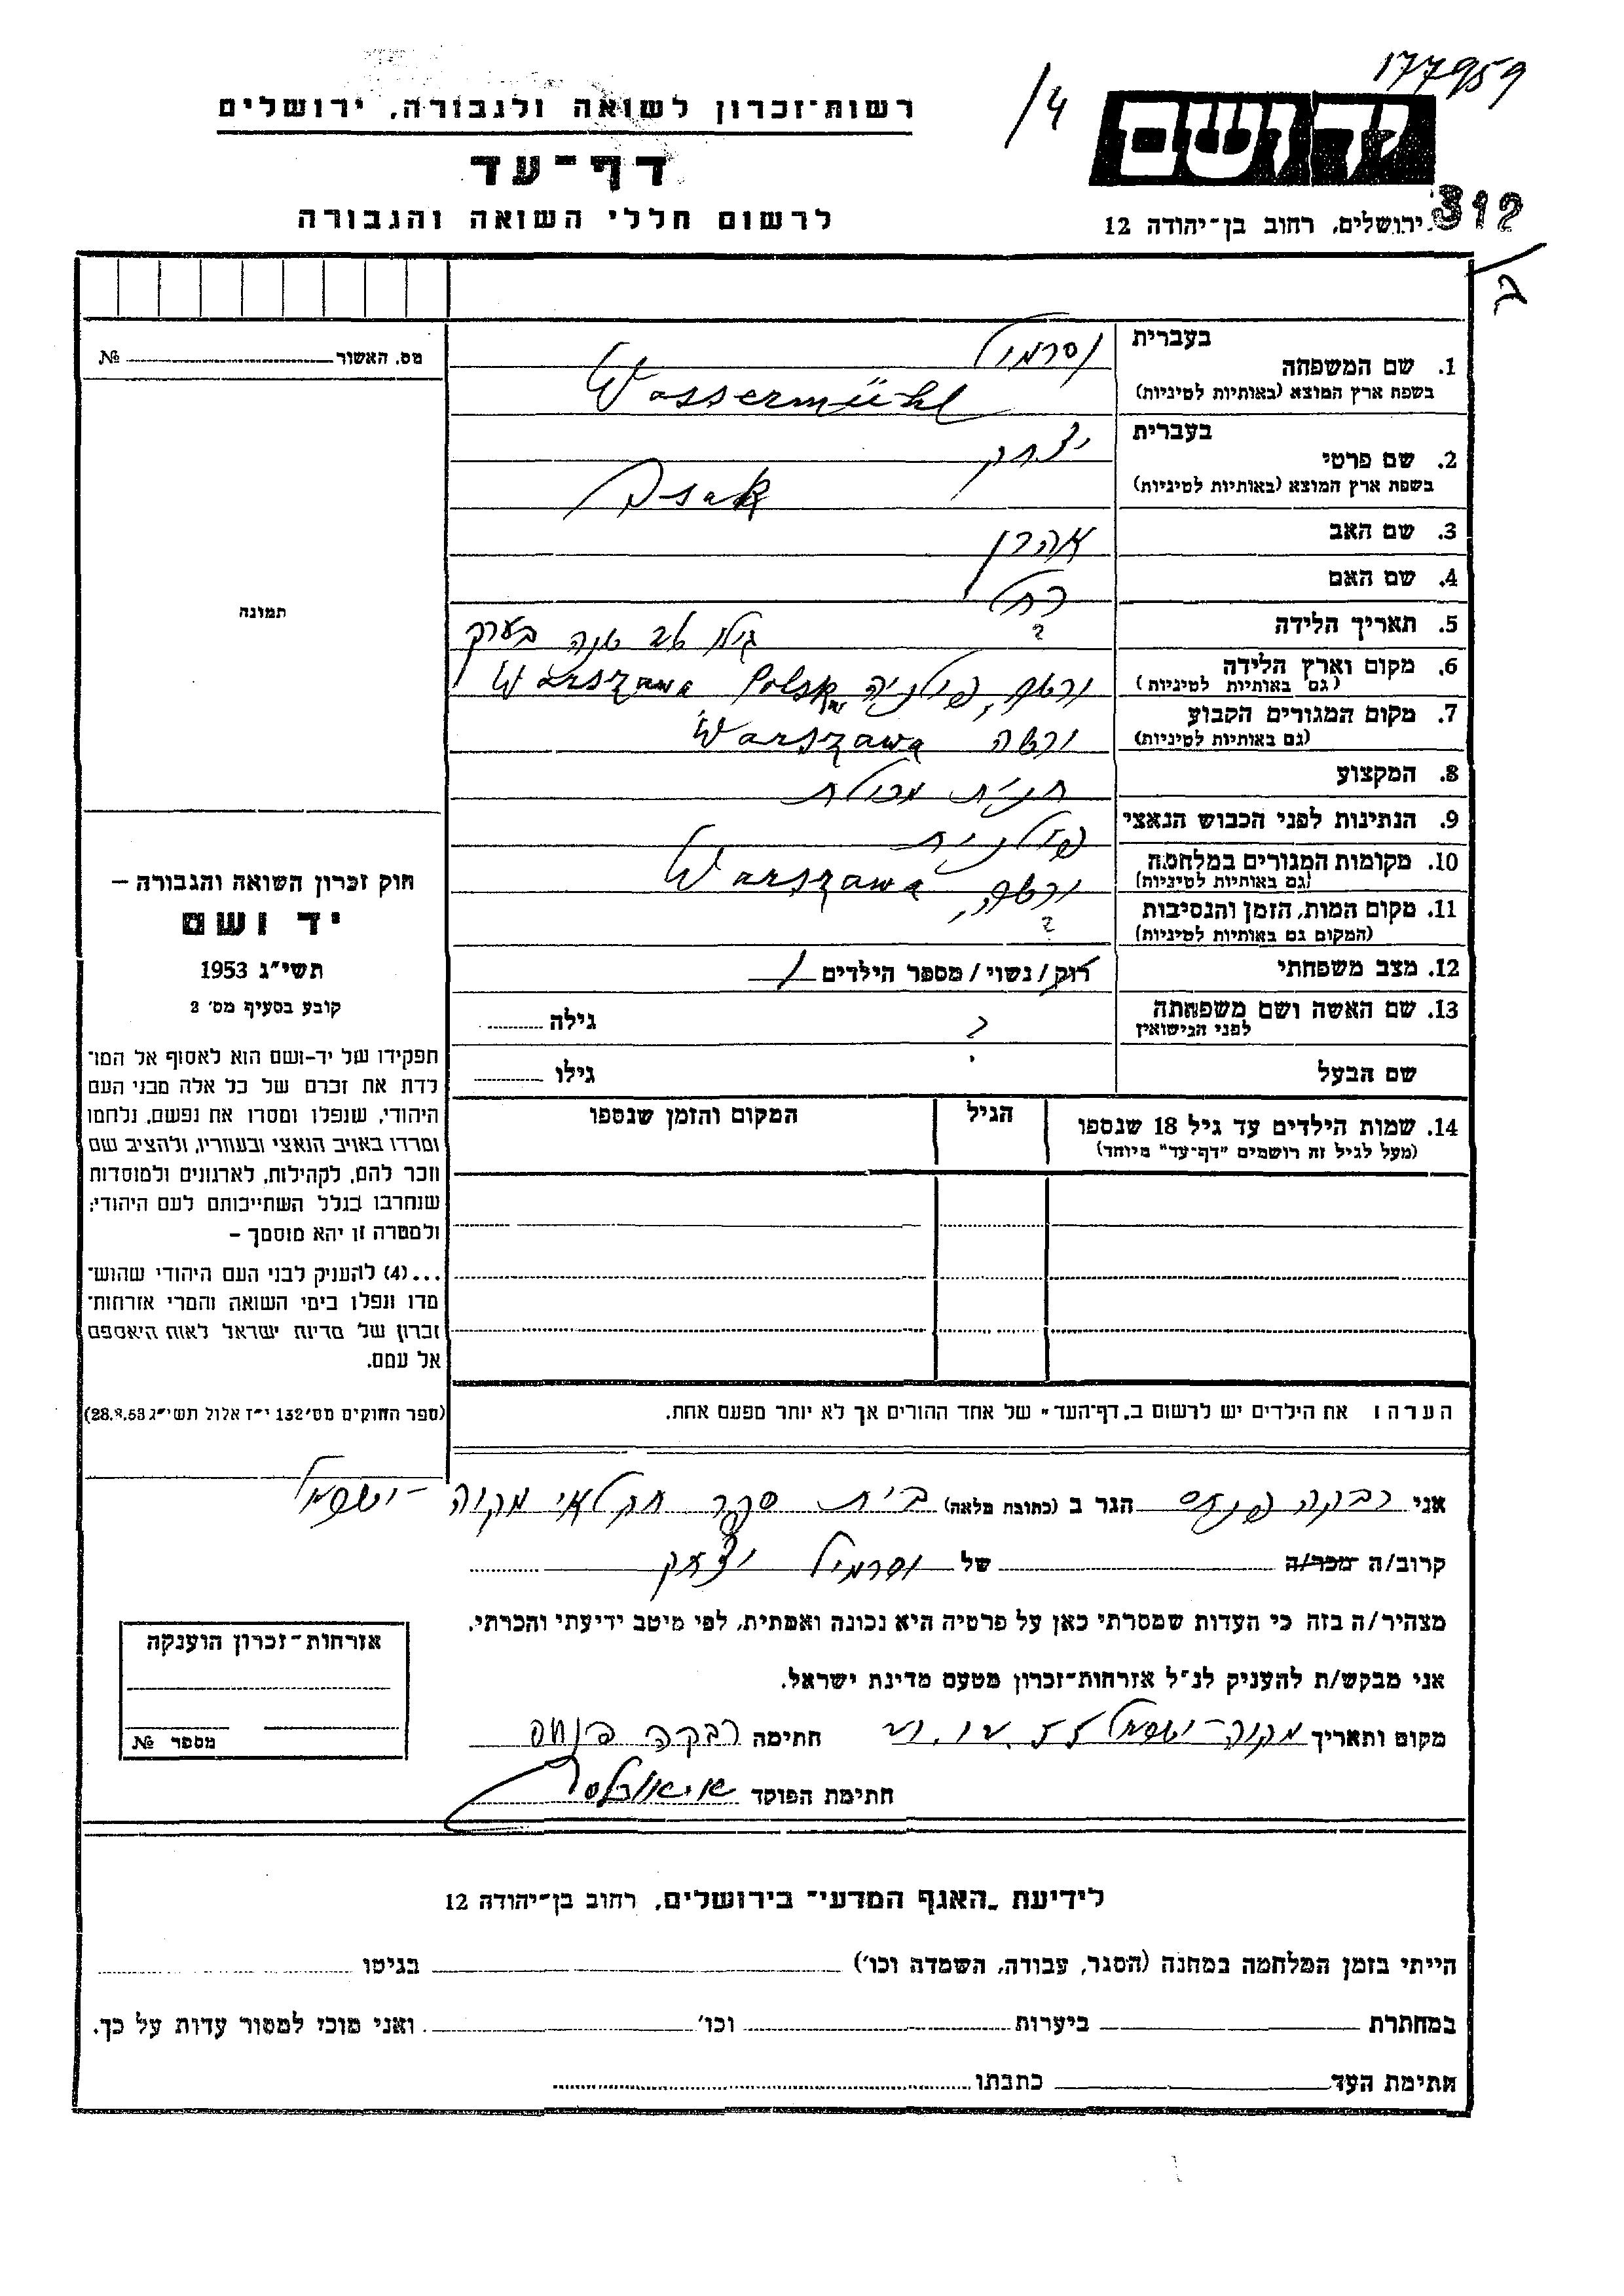 177959
/4
יד ושם
רשות־זכרון לשואה ולגבורה, ירושלים
דף־עד
לרשום חללי השואה והגבורה
ירושלים, רחוב בן־יהודה 12
312
ב
מס. האשור № 
1. שם המשפחה
בעברית וסרמיל
בשפת ארץ המוצא (באותיות לטיניות) Wassermühl
2. שם פרטי
בעברית יצחק
בשפת ארץ המוצא (באותיות לטיניות) Isak
3. שם האב אהרן
4. שם האם רחל
תמונה
5. תאריך הלידה ? גילו שנה בערך
6. מקום וארץ הלידה (גם באותיות לטיניות) ורשה, פולניה Warszawa Polska
7. מקום המגורים הקבוע (גם באותיות לטיניות) ורשה Warszawa
8. המקצוע חנות מכולת
9. הנתינות לפני הכבוש הנאצי פולנית
10. מקומות המגורים במלחמה (גם באותיות לטיניות) ורשה, Warszawa
11. מקום המות, הזמן והנסיבות (המקום גם באותיות לטיניות) ?
12. מצב משפחתי רוק/נשוי/מספר הילדים 1
13. שם האשה ושם משפחתה לפני הנישואין ? גילה
שם הבעל גילו
14. שמות הילדים עד גיל 18 שנספו
(מעל לגיל זה רושמים "דף־עד" מיוחד)
הגיל
המקום והזמן שנספו
הערה: את הילדים יש לרשום ב„דף־העד" של אחד ההורים אך לא יותר מפעם אחת.
חוק זכרון השואה והגבורה –
יד ושם
תשי"ג 1953
קובע בסעיף מס' 2
תפקידו של יד-ושם הוא לאסוף אל המו־
לדת את זכרם של כל אלה מבני העם
היהודי, שנפלו ומסרו את נפשם, נלחמו
ומרדו באויב הנאצי ובעוזריו, ולהציב שם
וזכר להם, לקהילות, לארגונים ולמוסדות
שנחרבו בגלל השתייכותם לעם היהודי;
ולמטרה זו יהא מוסמך –
...(4) להעניק לבני העם היהודי שהוש־
מדו ונפלו בימי השואה והמרי אזרחות־
זכרון של מדינת ישראל לאות היאספם
אל עמם.
(ספר החוקים מס' 132 י"ז אלול תשי"ג 28.8.53)
אני רבקה פנחס הגר ב (כתובת מלאה) בית ספר חקלאי מקוה-ישראל
קרוב/ה מכר/ה של וסרמיל יצחק
מצהיר/ה בזה כי העדות שמסרתי כאן על פרטיה היא נכונה ואמתית, לפי מיטב ידיעתי והכרתי.
אני מבקש/ת להעניק לנ"ל אזרחות־זכרון מטעם מדינת ישראל.
מקום ותאריך מקוה-ישראל חתימה רבקה פנחס
חתימת הפוקד
אזרחות־זכרון הוענקה
מספר №
לידיעת „האגף המדעי" בירושלים, רחוב בן־יהודה 12
הייתי בזמן המלחמה במחנה (הסגר, עבודה, השמדה וכו') בגיטו
במחתרת ביערות וכו' ואני מוכן למסור עדות על כך.
חתימת העד כתבתו